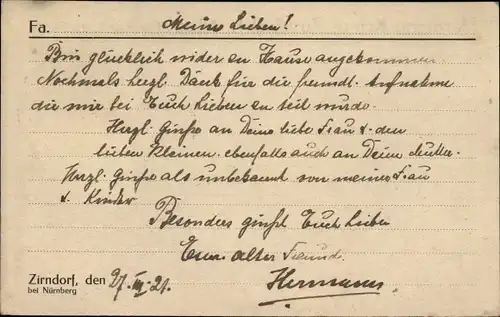 Fa.
Meine Lieben!
Bin glücklich wider zu Hause angekommen
Nochmals herzl. Dank für die freundl. Aufnahme
die mir bei Euch Lieben zu teil wurde.
Herzl. Grüße an Deine liebe Frau & den
lieben Kleinen. ebenfalls auch an Deine Mutter.
Herzl. Grüße als unbekannt von meiner Frau
& Kinder
Besonders grüßt Euch Lieben
Euer alter Freund.
Hermann
Zirndorf, den 27. III. 21.
bei Nürnberg